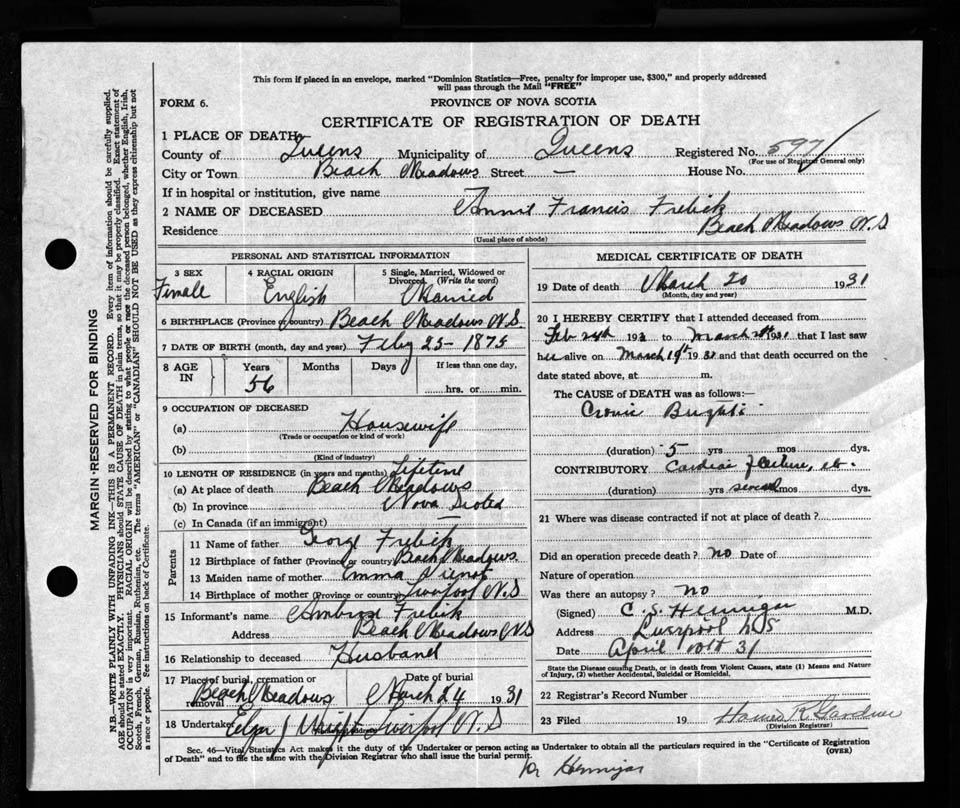 This form if placed in an envelope, marked "Dominion Statistics—Free, penalty for improper use, $300," and properly addressed
will pass through the Mail "FREE"
FORM 6.
PROVINCE OF NOVA SCOTIA
CERTIFICATE OF REGISTRATION OF DEATH
1 PLACE OF DEATH
County of Queens Municipality of Queens Registered No. 597
(For use of Registrar General only)
City or Town Beach Meadows Street — House No.
If in hospital or institution, give name
2 NAME OF DECEASED Annie Francis Frelick
Residence Beach Meadows N.S
(Usual place of abode)
PERSONAL AND STATISTICAL INFORMATION
3 SEX Female
4 RACIAL ORIGIN English
5 Single, Married, Widowed or Divorced (Write the word) Married
6 BIRTHPLACE (Province or country) Beach Meadows N.S.
7 DATE OF BIRTH (month, day and year) Feby 25 - 1875
8 AGE IN Years 56 Months Days If less than one day, hrs. or min.
9 OCCUPATION OF DECEASED
(a) Housewife
(Trade or occupation or kind of work)
(b)
(Kind of industry)
10 LENGTH OF RESIDENCE (in years and months) Lifetime
(a) At place of death Beach Meadows
(b) In province Nova Scotia
(c) In Canada (if an immigrant) —
Parents
11 Name of father George Frelick
12 Birthplace of father (Province or country) Beach Meadows
13 Maiden name of mother Emma
14 Birthplace of mother (Province or country) Liverpool N.S
15 Informant's name Ambrose Frelick
Address Beach Meadows N.S
16 Relationship to deceased Husband
17 Place of burial, cremation or removal Beach Meadows
Date of burial March 24 1931
18 Undertaker Liverpool N.S
MEDICAL CERTIFICATE OF DEATH
19 Date of death March 20 1931
(Month, day and year)
20 I HEREBY CERTIFY that I attended deceased from
Feb 193 to March 1931 that I last saw
her alive on March 19th 1931 and that death occurred on the
date stated above, at m.
The CAUSE OF DEATH was as follows:
Cronic Brights
(duration) 5 yrs mos dys.
CONTRIBUTORY Cardiac Failure, etc.
(duration) yrs several mos dys.
21 Where was disease contracted if not at place of death?
Did an operation precede death? no Date of
Nature of operation
Was there an autopsy? no
(Signed) C. S. Hennigar M.D.
Address Liverpool N.S
Date April 31
State the Disease causing Death, or in death from Violent Causes, state (1) Means and Nature
of Injury, (2) whether Accidental, Suicidal or Homicidal.
22 Registrar's Record Number
23 Filed 19 Homer R. Gardner
(Division Registrar)
Sec. 46—Vital Statistics Act makes it the duty of the Undertaker or person acting as Undertaker to obtain all the particulars required in the "Certificate of Registration
of Death" and to file the same with the Division Registrar who shall issue the burial permit.
(OVER)
Dr Hennigar
MARGIN RESERVED FOR BINDING
N.B.—WRITE PLAINLY WITH UNFADING INK—THIS IS A PERMANENT RECORD. Every item of information should be carefully supplied.
AGE should be stated EXACTLY. PHYSICIANS should STATE CAUSE OF DEATH in plain terms, so that it may be properly classified. Exact statement of
OCCUPATION is very important. RACIAL ORIGIN will be described by stating to what people or race the deceased person belonged, whether English, Irish,
Scotch, French, German, Russian, Ruthenian, etc. The terms "AMERICAN" or "CANADIAN" SHOULD NOT BE USED as they express citizenship but not
a race or people. See instructions on back of Certificate.